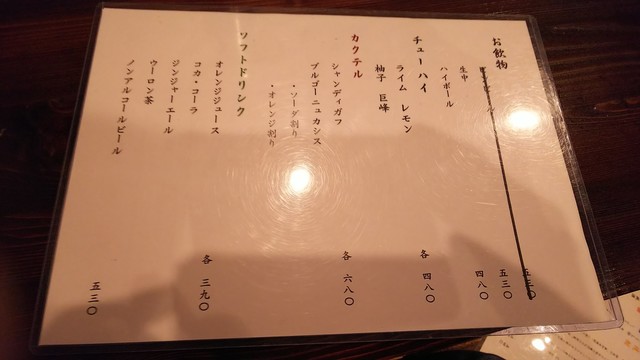 お飲物
五三〇
生中 五三〇
ハイボール 四八〇
チューハイ
ライム レモン
柚子 巨峰 各 四八〇
カクテル
シャンディガフ
ブルゴーニュカシス
・ソーダ割り
・オレンジ割り 各 六八〇
ソフトドリンク
オレンジジュース
コカ・コーラ
ジンジャーエール
ウーロン茶 各 三九〇
ノンアルコールビール 五三〇